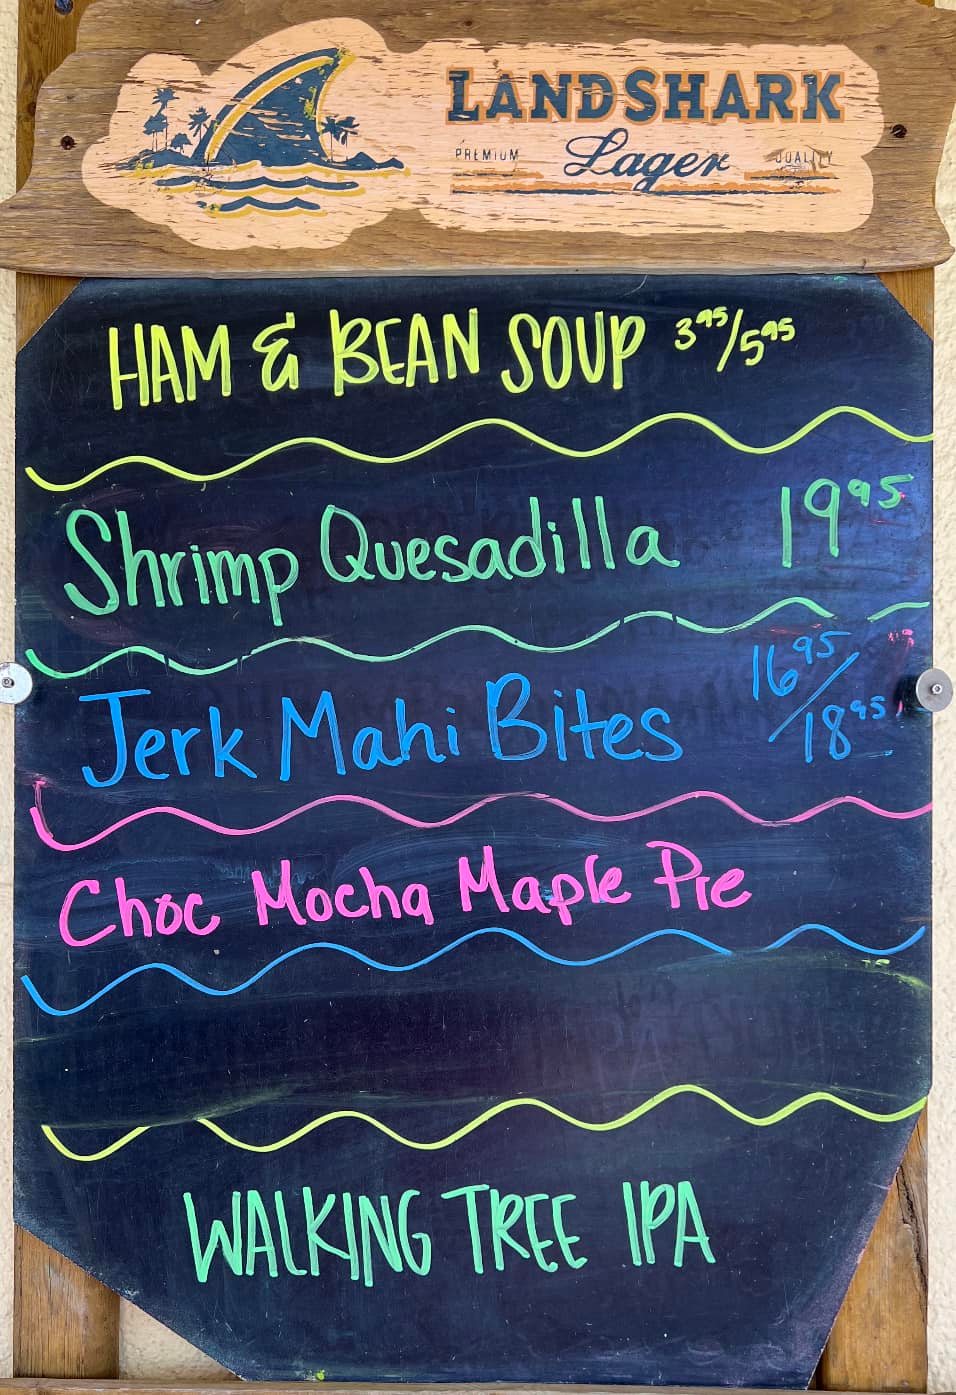 LANDSHARK
PREMIUM Lager QUALITY
HAM & BEAN SOUP 3.95/5.95
Shrimp Quesadilla 19.95
Jerk Mahi Bites 16.95/18.95
Choc Mocha Maple Pie
WALKING TREE IPA